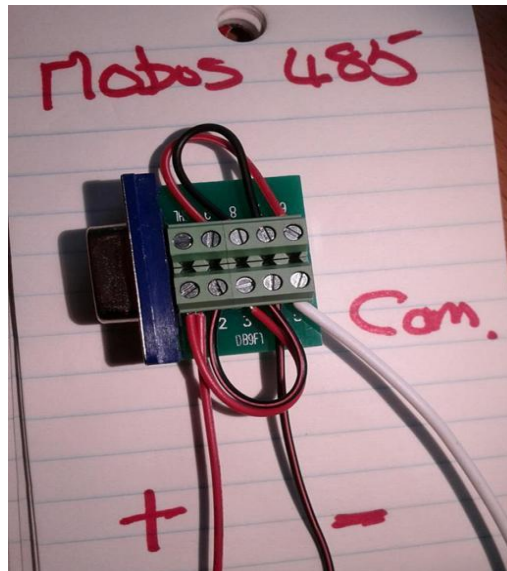 Mobos 485
8
9
2 3
DB9F1
Com.
+ -